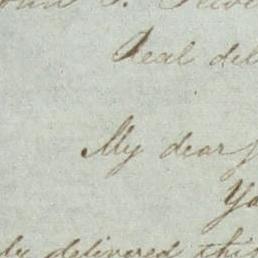 Real del
My dear
Yo
ly delivered this